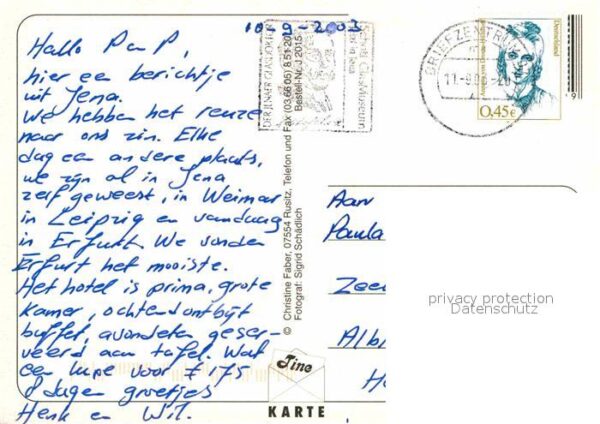 10-9-2003
Hallo P en P,
hier een berichtje
uit Jena.
We hebben het reuze
naar ons zin. Elke
dag een andere plaats,
we zijn al in Jena
zelf geweest, in Weimar
in Leipzig en vandaag
in Erfurt. We vonden
Erfurt het mooiste.
Het hotel is prima, grote
kamer, ochtendontbijt
buffet, avondeten geser-
veerd aan tafel. Wat
een luxe voor € 175
8 dagen groetjes
Henk en Wil.
DER JENAER GLASDOKTOR
Schott GlasMuseum
in Jena
© Christine Faber, 07554 Rusitz, Telefon und Fax (03 66 05) 8 51 20
Fotograf: Sigrid Schädlich
Bestell-Nr. J 2015
BRIEFZENTRUM
Deutschland
0,45€
9
Aan
Paula
Zee
Albl
privacy protection
Datenschutz
Tino
KARTE